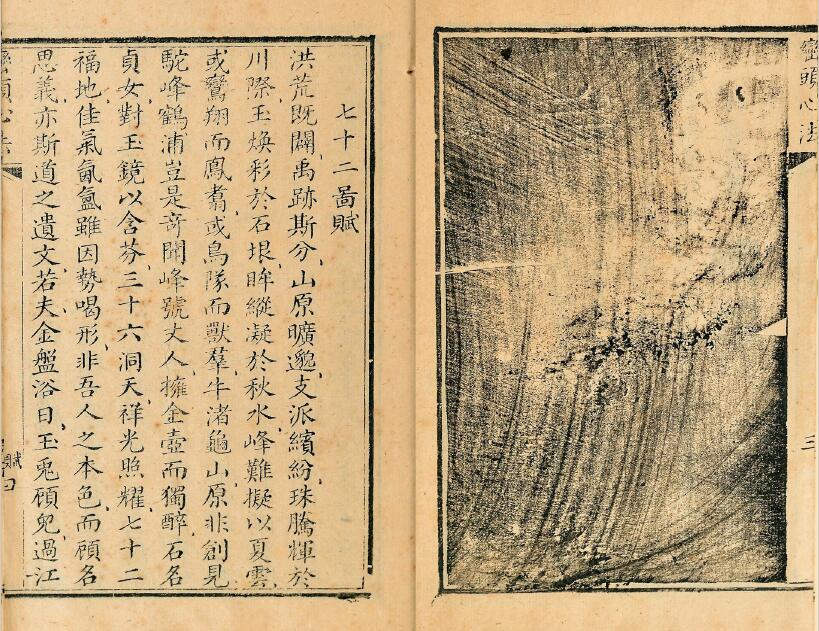 巒頭心法
三
七十二啚賦
洪荒既闢禹跡斯分、山原曠邈、支派繽紛珠騰輝於
川際、玉煥彩於石垠、眸縱凝於秋水、峰難擬以夏雲、
或鸞翔而鳳翥、或鳥隊而獸羣、牛渚龜山、原非創見
駝峰鶴浦豈是竒聞峰號丈人、擁金壺而獨醉、石名
貞女、對玉鏡以含芬、三十六洞天、祥光照耀、七十二
福地、佳氣氤氳、雖因勢喝形、非吾人之本色、而顧名
思義、亦斯道之遺文、若夫金盤浴日、玉兎顧兒、過江